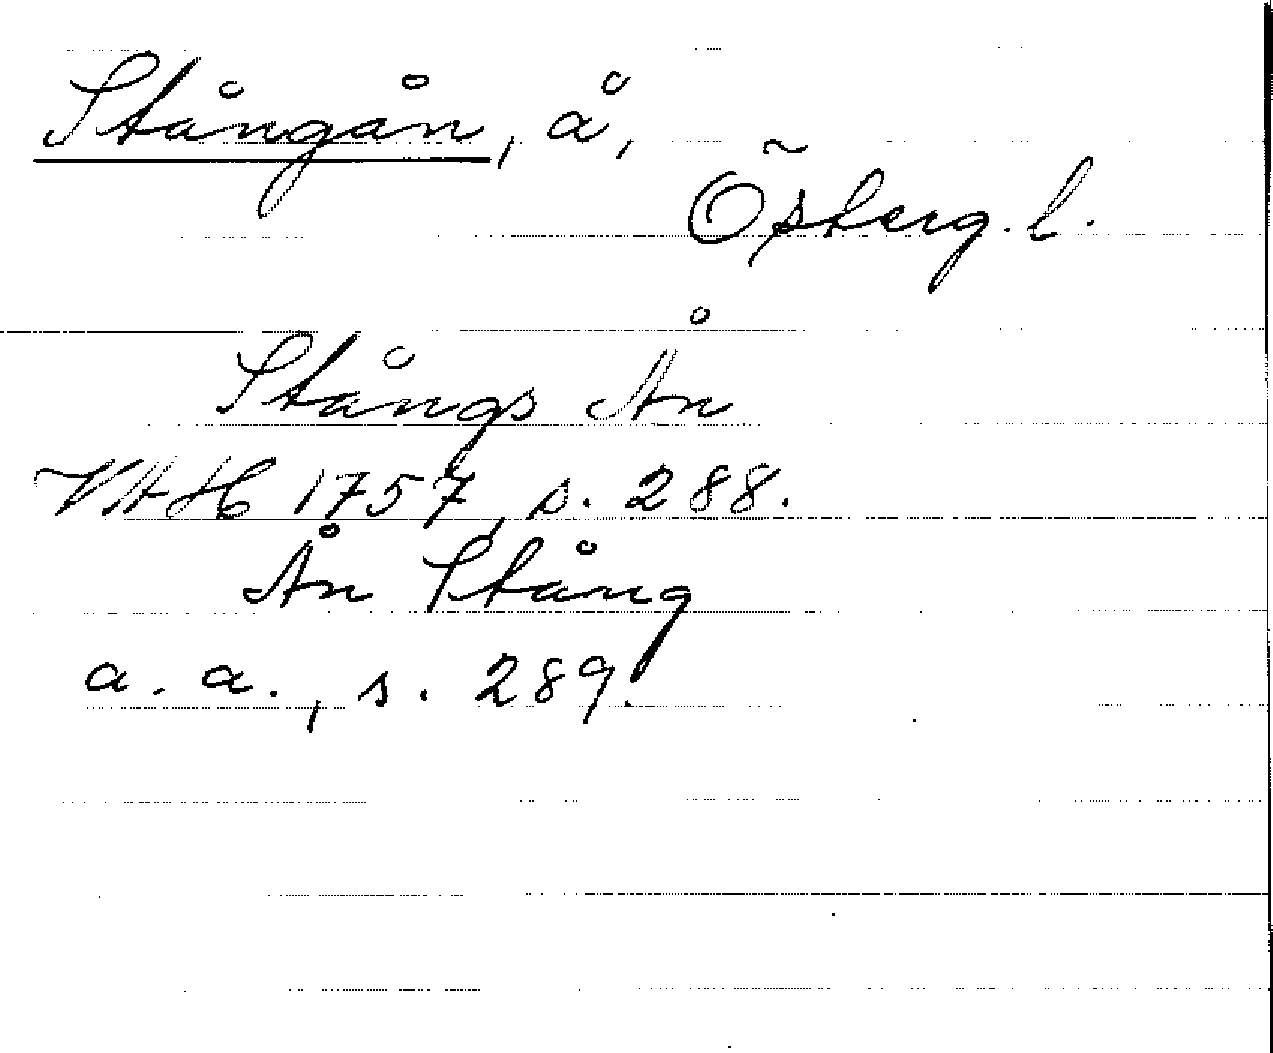 Stångån, å,
Österg. l.
Stångs Ån
VAH 1757, s. 288.
Ån Stång
a. a., s. 289.